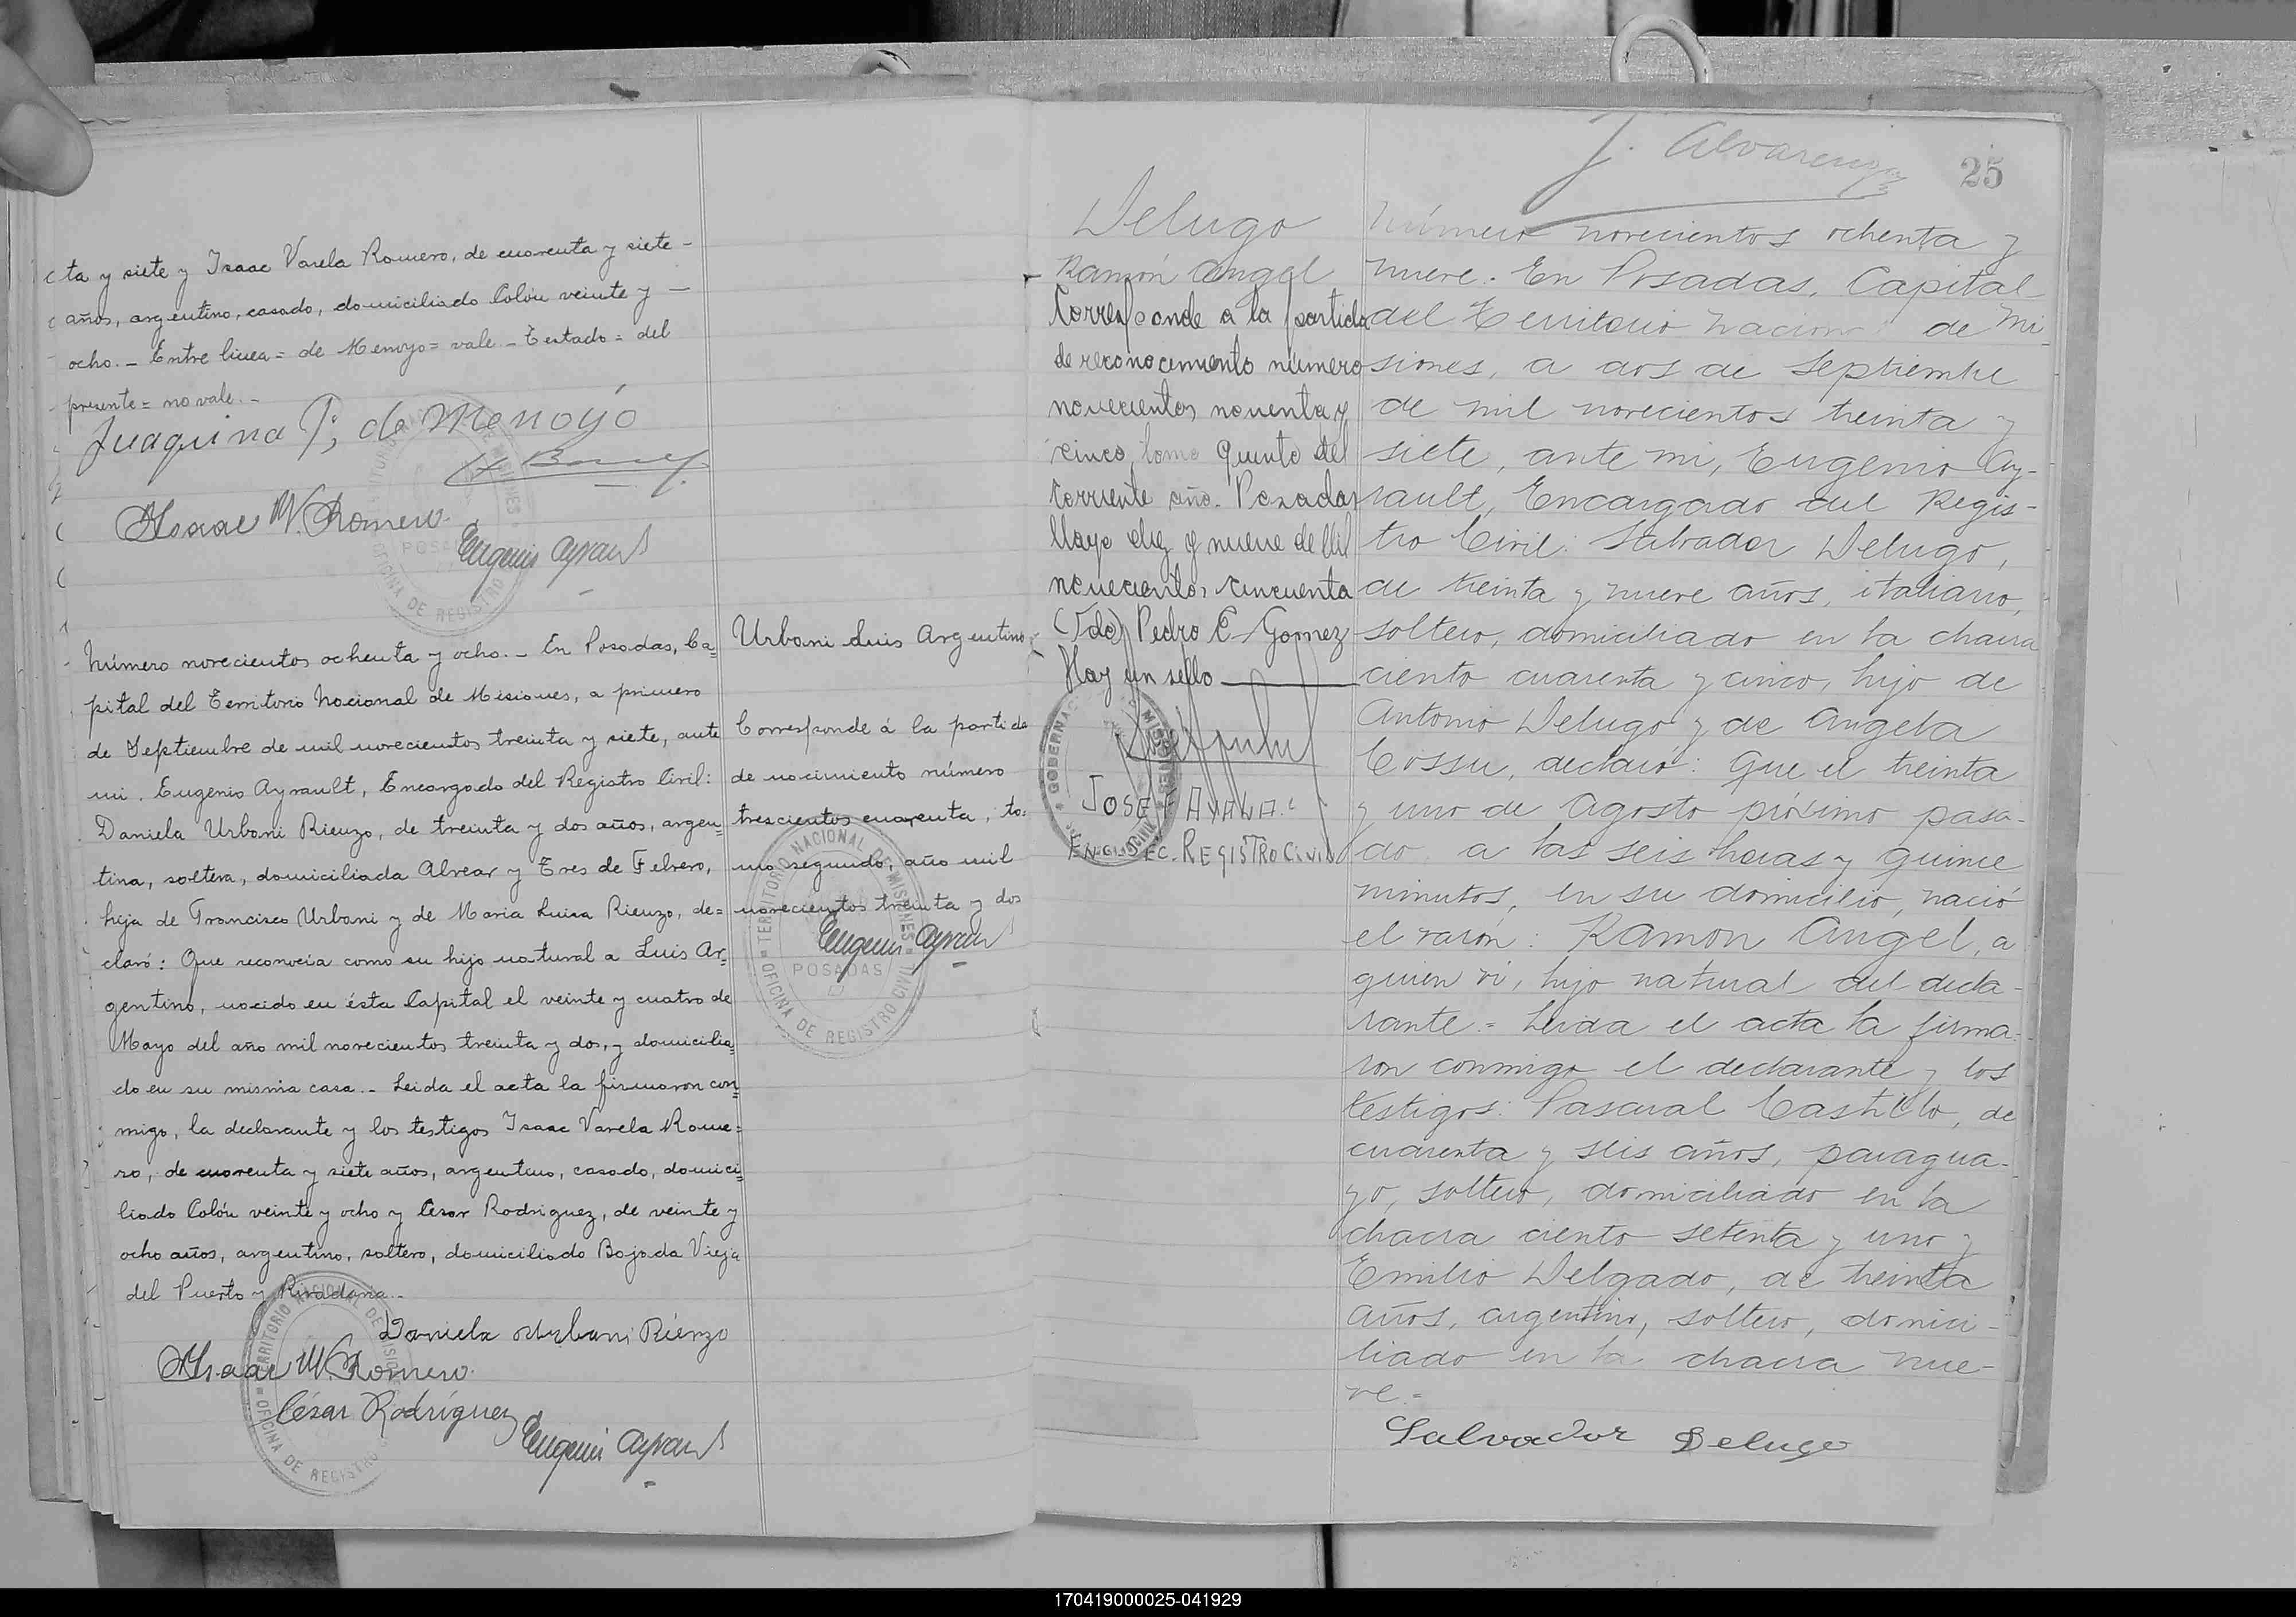 cta y siete y Isaac Varela Romero, de cuarenta y siete -
años, argentino, casado, domiciliado Colón veinte y -
ocho. - Entre linea = de Menoyo = vale - Testado = del
presente = no vale. -
Juaquina P, de Menoyo
Isaac V. Romero
Eugenio Ayrault
Número novecientos ochenta y ocho. - En Posadas, Ca=
pital del Territorio Nacional de Misiones, a primero
de Septiembre de mil novecientos treinta y siete, ante
mi. Eugenio Ayrault, Encargado del Registro Civil:
Daniela Urbani Rienzo, de treinta y dos años, argen=
tina, soltera, domiciliada Alvear y Tres de Febrero,
hija de Francisco Urbani y de Maria Luisa Rienzo, de=
claró: Que reconocia como su hijo natural a Luis Ar=
gentino, nacido en ésta Capital el veinte y cuatro de
Mayo del año mil novecientos treinta y dos, y domicilia=
do en su misma casa. - Leida el acta la firmaron con
migo, la declarante y los testigos Isaac Varela Rome=
ro, de cuarenta y siete años, argentino, casado, domici=
liado Colón veinte y ocho y César Rodriguez, de veinte y
ocho años, argentino, soltero, domiciliado Bajada Vieja
del Puerto y Rivadavia. -
Daniela Urbani Rienzo
Isaac V. Romero
César Rodríguez
Eugenio Ayrault
TERRITORIO NACIONAL DE MISIONES
OFICINA DE REGISTRO
Urbani Luis Argentino
Corresponde á la partida
de nacimiento número
trescientos cuarenta, to=
mo segundo, año mil
novecientos treinta y dos
Eugenio Ayrault
TERRITORIO NACIONAL DE MISIONES
POSADAS
OFICINA DE REGISTRO CIVIL
J. Alvarenga
25
Delugo
Ramón Angel
Corresponde a la partida
de reconocimiento número
novecientos noventa y
cinco, tomo quinto del
corriente año. Posadas
Mayo diez y nueve de Mil
novecientos cincuenta
(Fdo) Pedro E. Gomez
Hay un sello
JOSE F AYALA
ENC. SEC. REGISTRO CIVIL
Número novecientos ochenta y
nueve. En Posadas, Capital
del Territorio Nacional de Mi
siones, a dos de Septiembre
de mil novecientos treinta y
siete, ante mi, Eugenio Ay-
rault, Encargado del Regis-
tro Civil: Salvador Delugo,
de treinta y nueve años, italiano,
soltero, domiciliado en la chacra
ciento cuarenta y cinco, hijo de
Antonio Delugo y de Angela
Cossu, declaró: Que el treinta
y uno de Agosto próximo pasa-
do, a las seis horas y quince
minutos, en su domicilio, nació
el varón: Ramon Angel, a
quien vi, hijo natural del decla-
rante. = Leida el acta la firma-
ron conmigo el declarante y los
testigos: Pascual Castillo, de
cuarenta y seis años, paragua-
yo, soltero, domiciliado en la
chacra ciento setenta y uno y
Emilio Delgado, de treinta
años, argentino, soltero, domici-
liado en la chacra nue-
ve =
Salvador Delugo
170419000025-041929